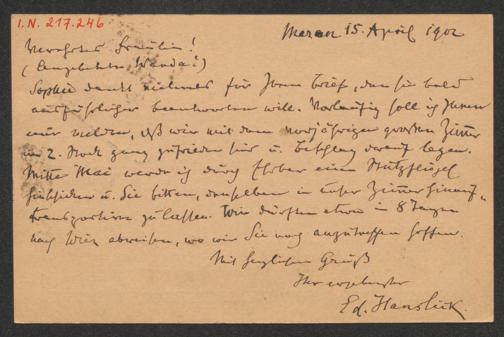 I.N. 217.246
Meran 15. April 1902
Verehrtes Fräulein!
(Angebetete Wanda!)
Sophie dankt vielmals für Ihren Brief, den sie bald
ausführlicher beantworten will. Vorläufig soll ich Ihnen
nur melden, daß wir mit dem vorjährigen großen Zimmer
im 2. Stock ganz zufrieden sind u. Beschlag darauf legen.
Mitte Mai werde ich durch Ehrbar einen Stutzflügel
hinschicken u. Sie bitten, denselben in unser Zimmer hinauf-
transportiren zu lassen. Wir dürften etwa in 8 Tagen
nach Wien abreisen, wo wir Sie noch anzutreffen hoffen.
Mit herzlichem Gruß
Ihr ergebenster
Ed. Hanslick